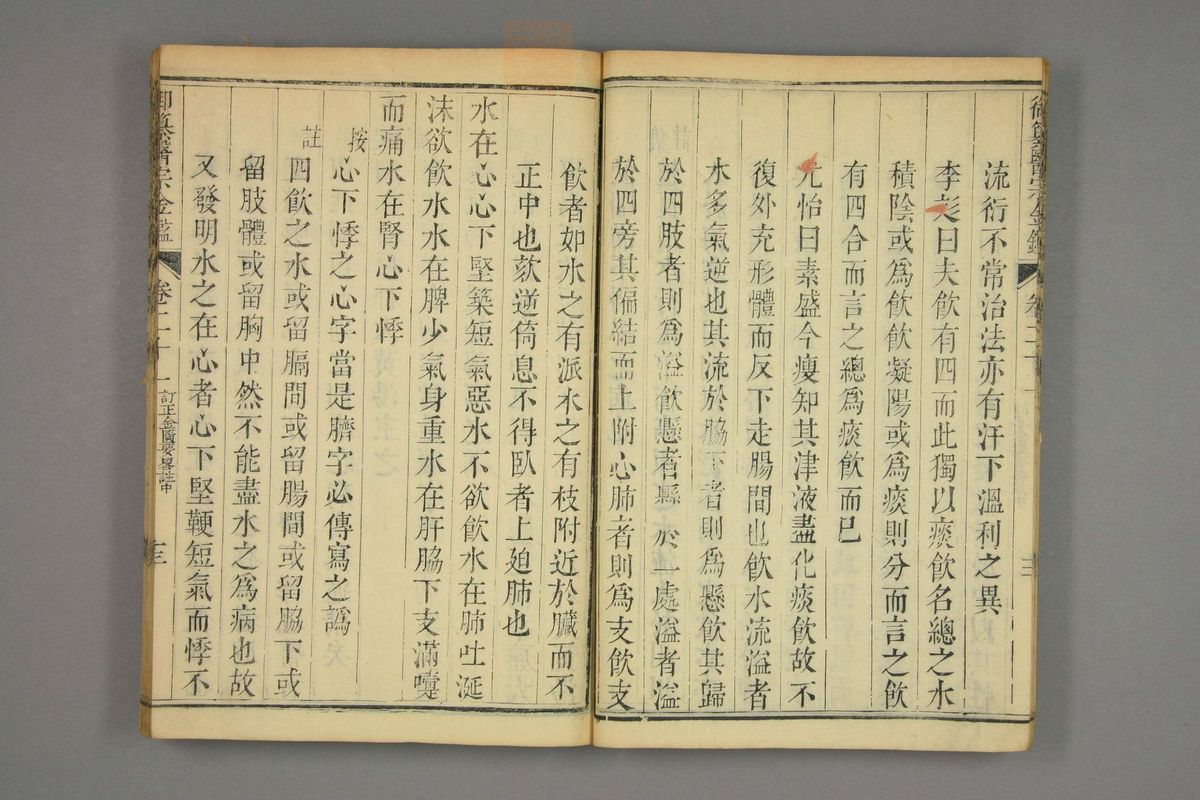 流衍不常治法亦有汗下溫利之異
李彣曰夫飲有四而此獨以痰飲名總之水
積陰或爲飲飲凝陽或爲痰則分而言之飲
有四合而言之總爲痰飲而已
尤怡曰素盛今瘦知其津液盡化痰飲故不
復外充形體而反下走腸間也飲水流溢者
水多氣逆也其流於脇下者則爲懸飲其歸
於四肢者則爲溢飲懸者縣於一處溢者溢
於四旁其偏結而上附心肺者則爲支飲支
飲者如水之有派木之有枝附近於臟而不
正中也欬逆倚息不得臥者上廹肺也
水在心心下堅築短氣惡水不欲飲水在肺吐涎
沫欲飲水水在脾少氣身重水在肝脇下支滿嚏
而痛水在腎心下悸
按心下悸之心字當是臍字必傳寫之譌
註四飲之水或留膈間或留腸間或留脇下或
留肢體或留胸中然不能盡水之爲病也故
又發明水之在心者心下堅鞕短氣而悸不
御纂醫宗金鑑 卷二十 訂正金匱要畧註中